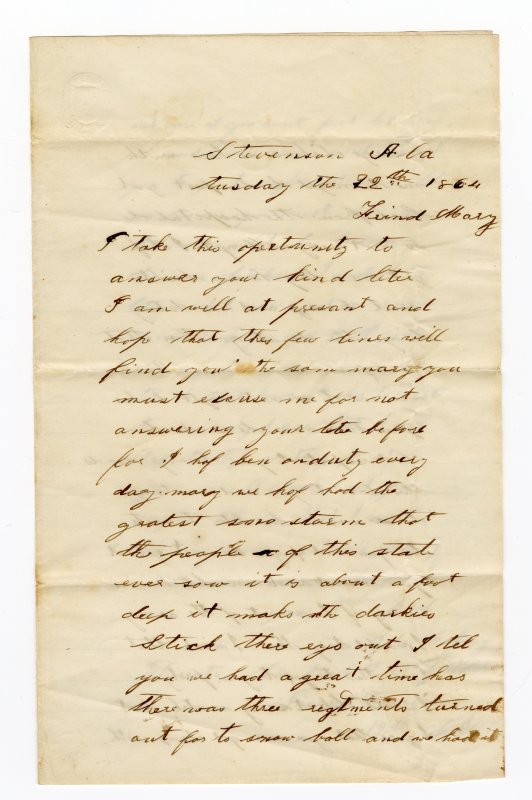 Stevenson Ala
tusday the 22th 1864
Frind Mary
I take this opertunity to
answer your kind leter
I am will at presant and
hope that thes few lines will
find you the som mary you
must excuse me for not
answering your lete before
for I hof ben onduty every
day mary we hof had the
gratest sno storm that
the people of this stat
ever sow it is about a foot
deep it maks the darkies
Stick there eys out I tel
you we had a great time has
there was three regtments turned
out for to snow ball and we had it